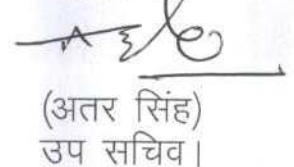 (अतर सिंह)
उप सचिव।